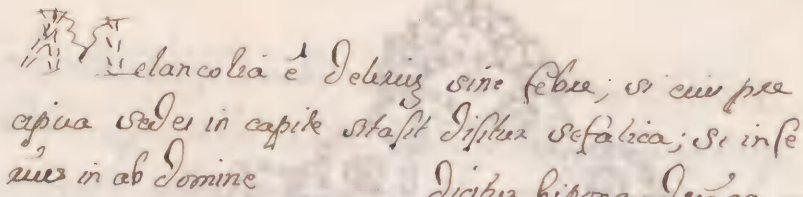 Melancolia é Deliriuz sine febre; si eius pre
cipua sedes in capite sita sit Disitur sefalica; si infe
rius in abDomine dicitur hipoconDriaca